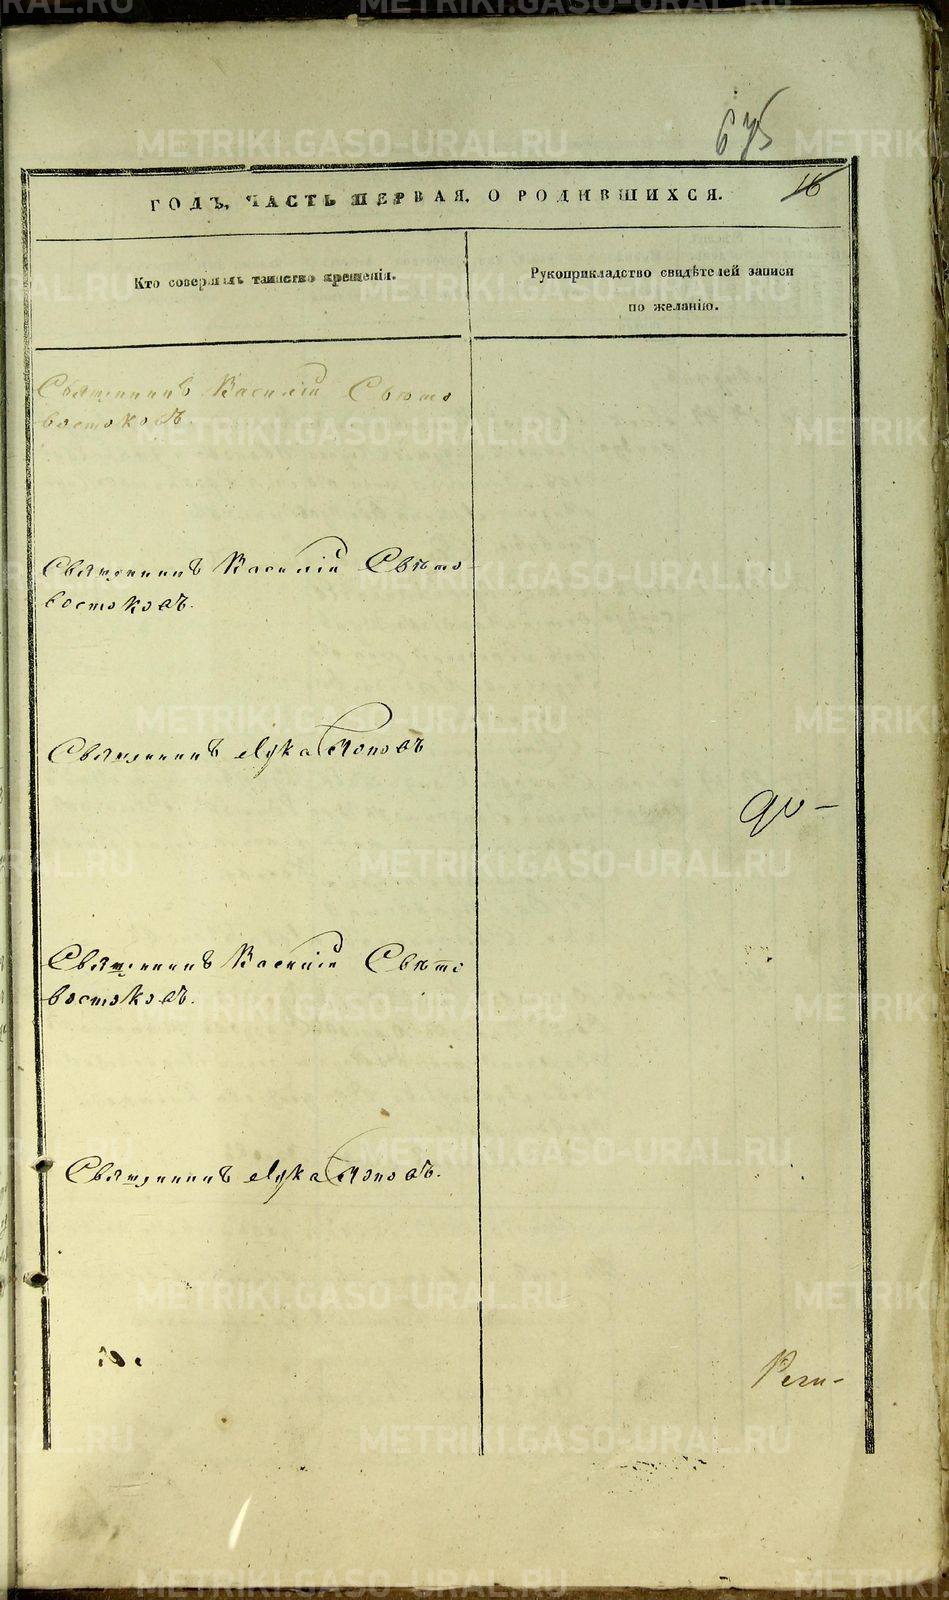 675
16
ГОДЪ, ЧАСТЬ ПЕРВАЯ, О РОДИВШИХСЯ.
Кто совершалъ таинство крещенія.
Рукоприкладство свидѣтелей записи
по желанію.
Священникъ Василій Свѣто
востоковъ.
Священникъ Василій Свѣто
востоковъ.
Священникъ Лука Поповъ
Священникъ Василій Свѣто
востоковъ.
Священникъ Лука Поповъ.
METRIKI.GASO-URAL.RU